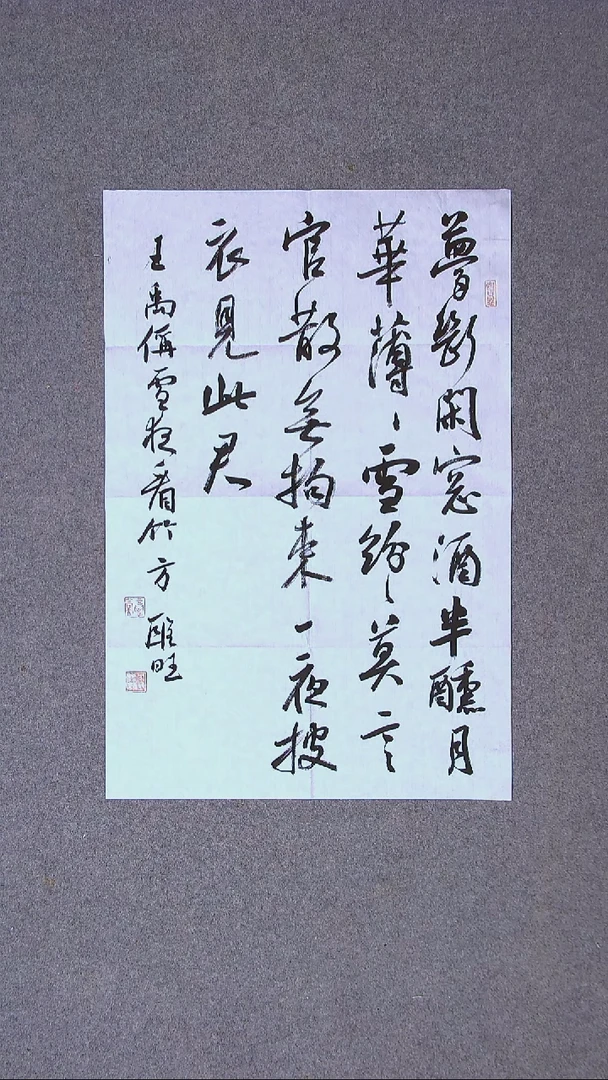 夢斷閑窓酒半醺月
華薄〻雪紛〻莫言
官散無拘束一夜披
衣見此君
王禹偁雪夜看竹方